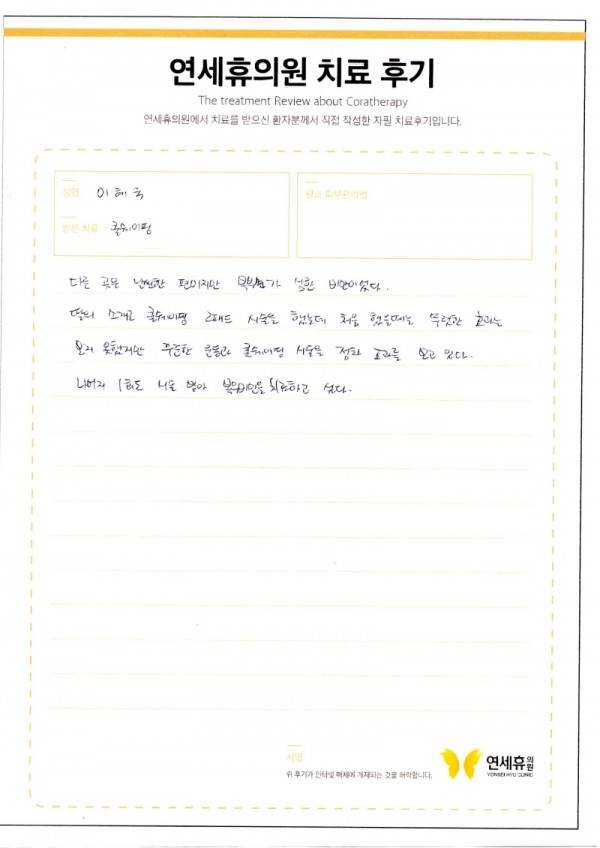 연세휴의원 치료 후기
The treatment Review about Coratherapy
연세휴의원에서 치료를 받으신 환자분께서 직접 작성한 자필 치료후기입니다.
성명 이혜숙
평소 피부관리법
받은 치료 쿨쉐이핑
다른 곳은 날씬한 편이지만 복부가 심한 비만이었다.
딸의 소개로 쿨쉐이핑 2패드 시술을 했는데 처음 했을때는 뚜렷한 효과는
보지 못했지만 꾸준한 운동과 쿨쉐이핑 시술을 정화 효과를 보고 있다.
나머지 1회도 시술 받아 복부비만을 치료하고 싶다.
서명
위 후기가 인터넷 매체에 개재되는 것을 허락합니다.
연세휴의원
YONSEI HYU CLINIC